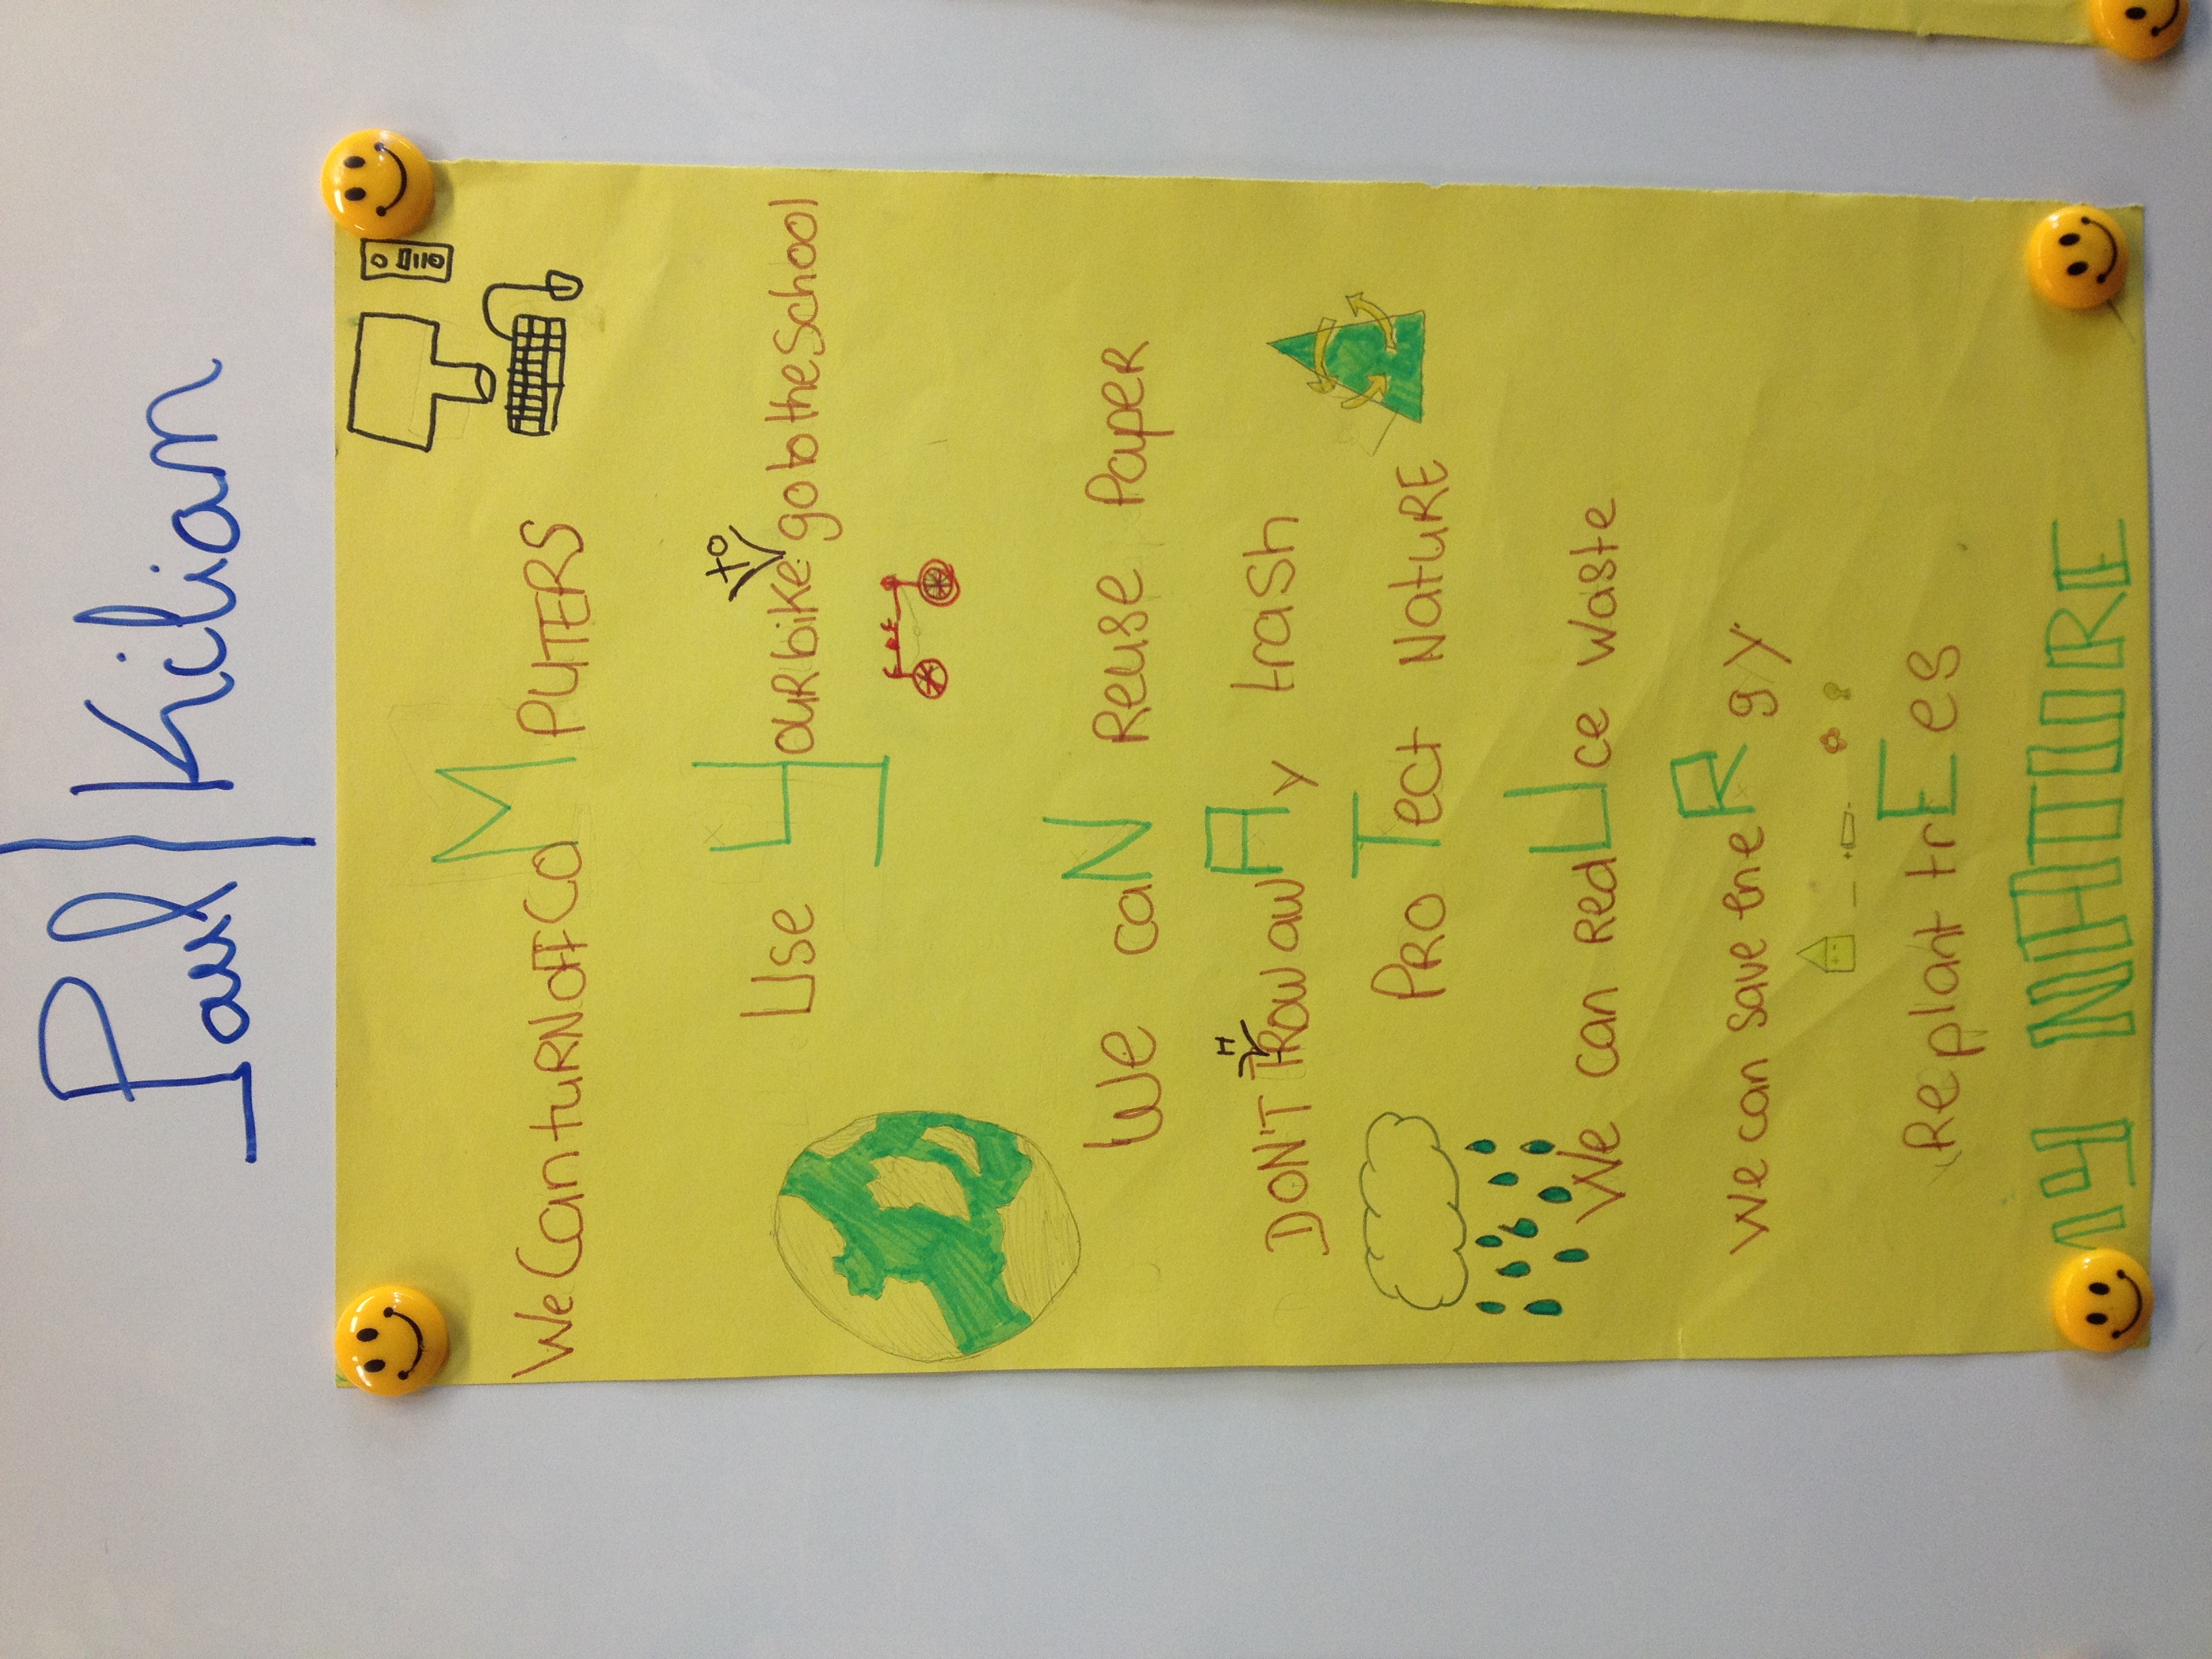 Paul Kilian
We Can tuRN off CoMPUTERS
Use YouR bike to go to the School
We caN Reuse Paper
DON'T THRow awAy trash
PRoTect NatuRE
We can redUce waste
We can save eneRgy
Replant trEes
MY NATURE